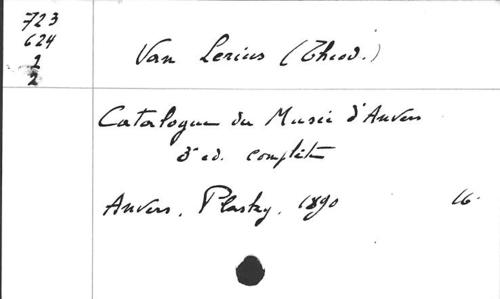 723
624
2
2
Van Lerius (Théod.)
Catalogue du Musée d'Anvers
3e ed. complète
Anvers. Plasky. 1890 16.